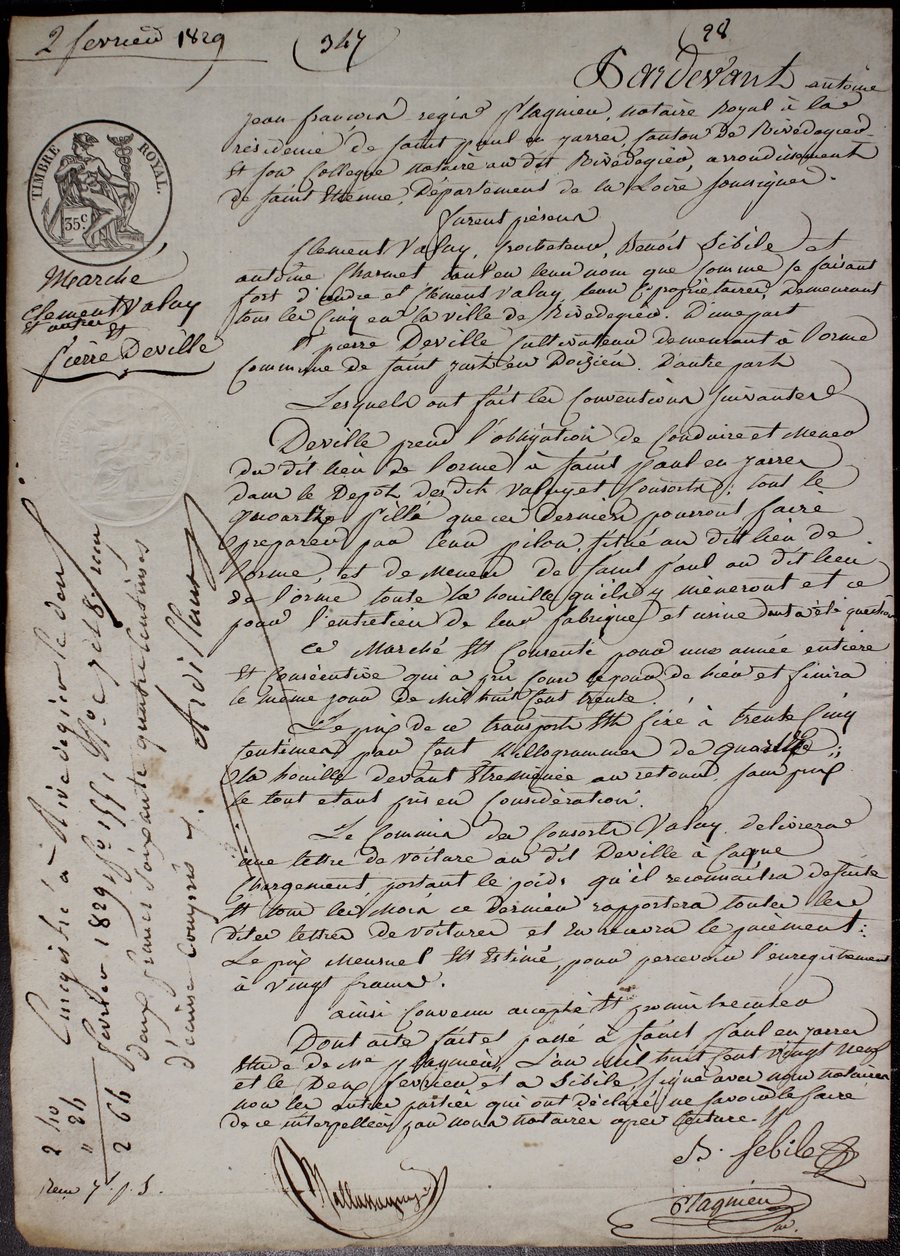 2 fevrier 1829
(347
(98
Pardevant antoine
jean françois regis Plagnieu, notaire Royal à la
résidence de saint paul en jarrer, canton de Rivedegier
Et son collegue notaire au dit Rivedegier, arrondissement
de saint Etienne, Département de la Loire soussignés.
furent présens
Clement Valuy, Crocheteur, Benoit Sibile et
antoine Charmet tant en leur nom que comme se faisant
fort d'andre et Clement Valuy, leur Cₒproprietaires, Demeurant
tous les Cinq en la ville de Rivedegier. D'une part
Et pierre Deville Cultivateur demeurant à Lorme
Commune de saint just en Doizieu. D'autre part
Lesquels ont fait les Conventions suivantes
Deville prend l'obligation de Conduire et Mener
du dit lieu de Lorme à saint paul en jarrer
dans le Depôt des dits Valuy et Consorts, tout le
quartz pillé que ces Derniers pourront faire
préparer par leur pilon, situé au dit lieu de
lorme, et de Mener de saint paul au dit lieu
de l'orme toute la houille qu'ils y mèneront et ce
pour l'entretien de leur fabrique et usine dont a été question
Ce Marché Est Consenti pour une année entière
Et Consécutive qui a pris cours ce jour de hier et finira
le même jour de Mil huit Cent trente
Le prix de ce transport Est fixé à trente Cinq
Centimes par Cent Killogrammes de quartz,
la houille devant Etre menée au retour sans prix
le tout etant pris en Considération.
Le Commis des Consorts Valuy delivrera
une lettre de voiture au dit Deville à Chaque
Chargement, portant le poids qu'il reconnaitra de suite
Et tous les Mois ce Dernier rapportera toutes les
dites lettres de voitures et En recevra le paiement:
Le prix Mensuel Est Estimé, pour percevoir l'enregistrement
à Vingt francs.
ainsi Convenu accepté Et promis Executer
Dont acte fait et passé à saint Paul en jarrer
Etude de Me Plagnieu, L'an mil huit Cent Vingt Neuf
et le Deux fevrier et a Sibile, signé avec nous notaires
non les autres parties qui ont déclaré ne savoir le faire
de ce interpellés par nous notaires après lecture.
B. Sebile
Plagnieu
TIMBRE ROYAL.
35c
Marché
Clement Valuy
Et autres
Et
Pierre Deville
Enregistré à Rivedegier le deux
fevrier 1829 fo 155, Ro c 7 et 8, reçu
deux francs soixante quatre centimes
d'ecime compris.
2 40
" 24
2 64